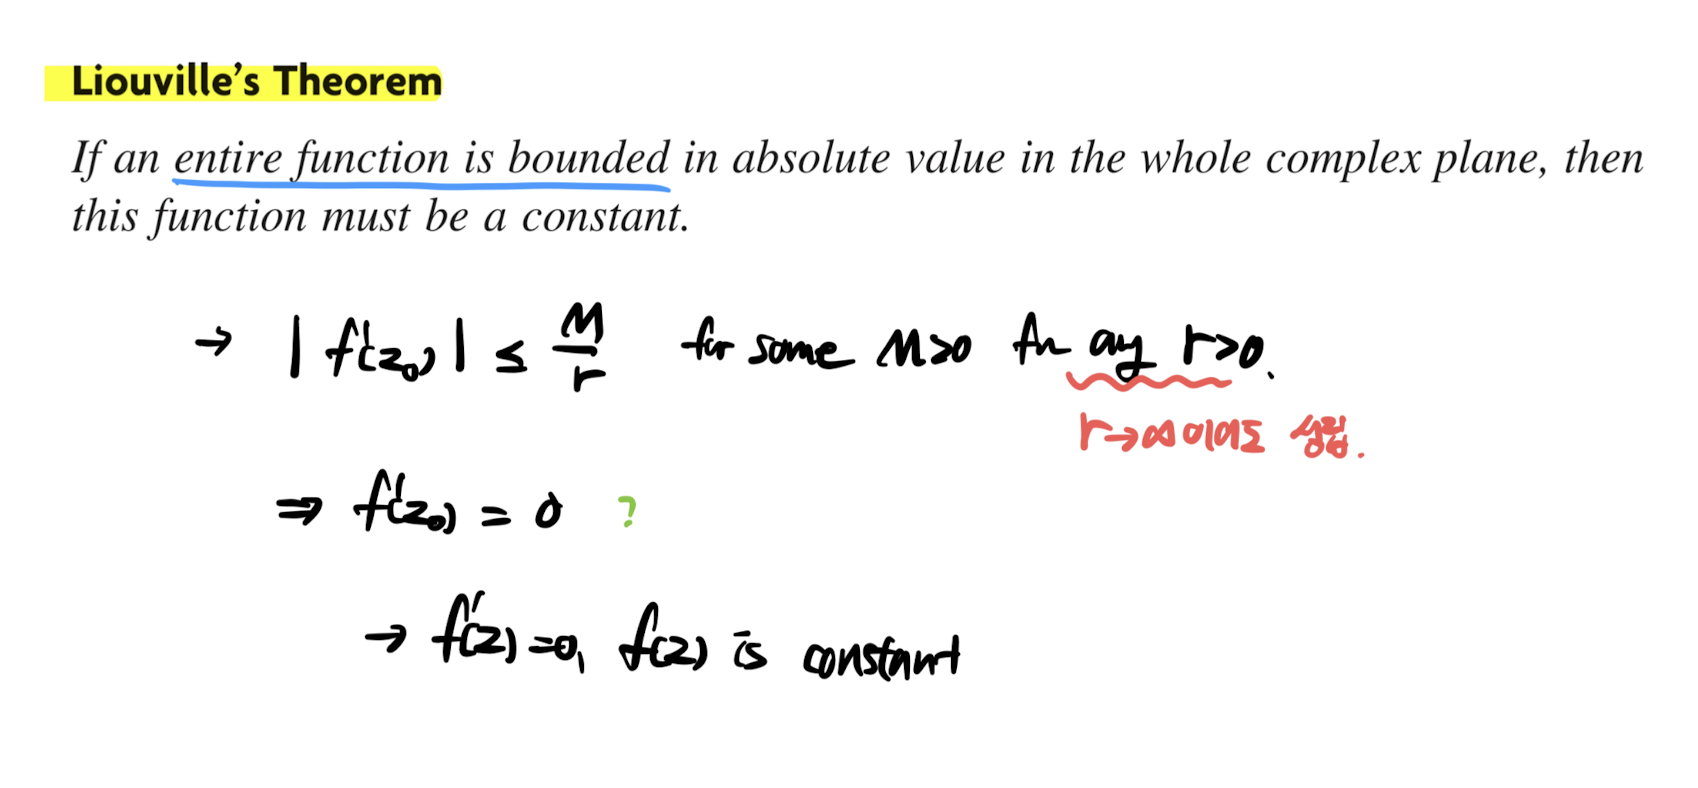 Liouville's Theorem
If an entire function is bounded in absolute value in the whole complex plane, then
this function must be a constant.
→ |f'(z₀)| ≤ M/r for some M>0 for any r>0.
r→∞이어도 성립.
⇒ f'(z₀) = 0 ?
→ f'(z)=0, f(z) is constant